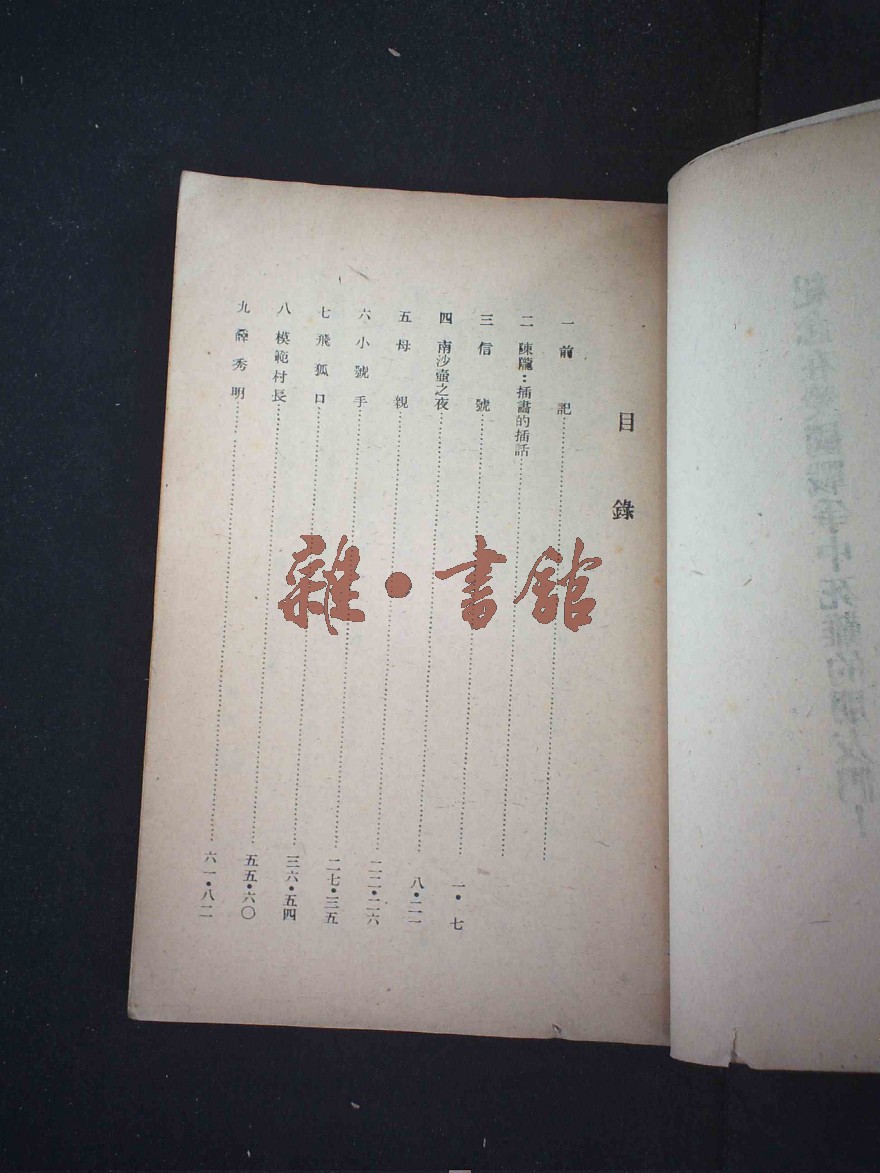 目錄
一 前記
二 陳隴：插畫的插話
三 信號 一・七
四 南沙壺之夜 八・二一
五 母親 二二・二六
六 小號手 二七・三五
七 飛狐口 三六・五四
八 模範村長 五五・六〇
九 秀明 六一・八二
雜・書館